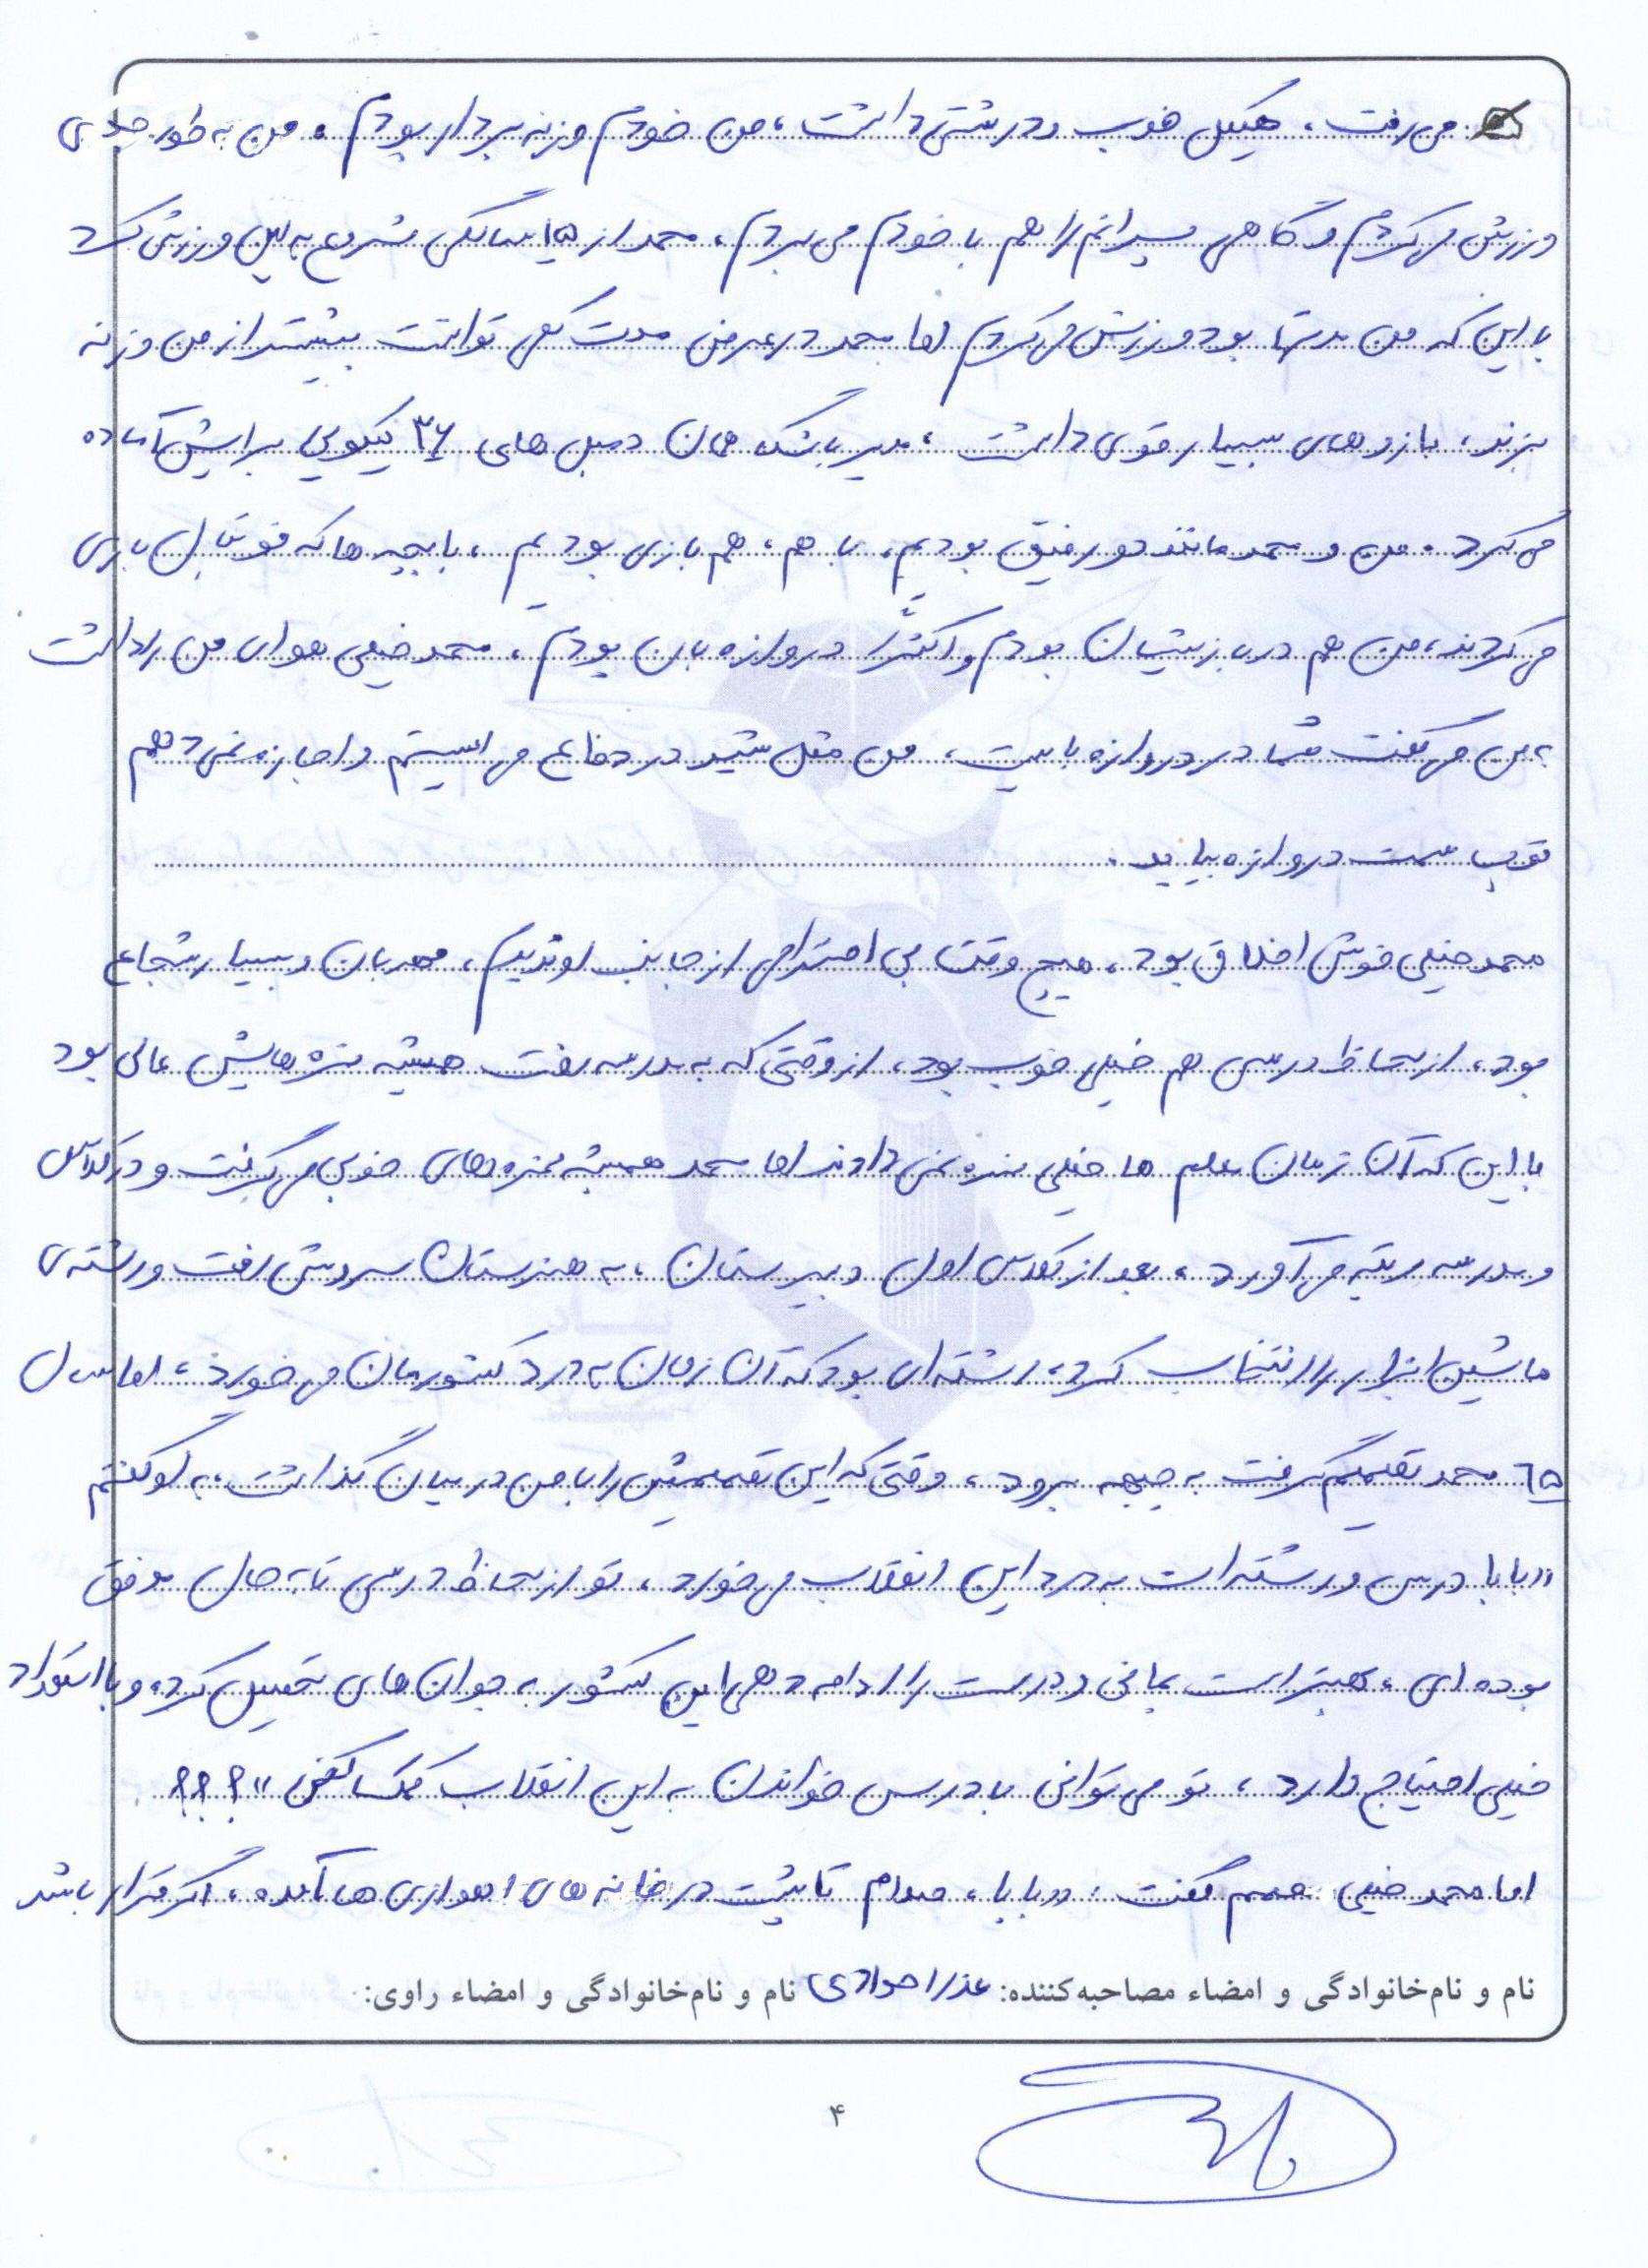 می‌رفت، هیکل خوب و درشتی داشت، من خودم وزنه بردار بودم، من به طور جدی
ورزش می‌کردم و گاهی پسرانم را هم با خودم می‌بردم، محمد از ۱۵ سالگی شروع به این ورزش کرد
با این که من مدتها بود ورزش می‌کردم اما محمد در عرض مدت کمی توانست بیشتر از من وزنه
بزند، بازوهای بسیار قوی داشت، مدیر باشگاهمان دمبل های ۳۶ کیلویی برایش آماده
می‌کرد. من و محمد مانند دو رفیق بودیم، با هم، هم بازی بودیم، با بچه ها که فوتبال بازی
می‌کردند، من هم در بازیشان بودم و اکثراً دروازه بان بودم، محمد خیلی هوای من را داشت
به من می‌گفت شما در دروازه بایست، من مثل شیر در دفاع می ایستم و اجازه نمی دهم
توپ سمت دروازه بیاید.
محمد خیلی خوش اخلاق بود، هیچ وقت بی احترامی از جانب او ندیدم، مهربان و بسیار شجاع
بود، از لحاظ درسی هم خیلی خوب بود، از وقتی که به مدرسه رفت همیشه نمره هایش عالی بود
با این که آن زمان معلم ها خیلی نمره نمی دادند اما محمد همیشه نمره های خوبی می‌گرفت و در کلاس
و مدرسه رتبه می آورد، بعد از کلاس اول دبیرستان، به هنرستان سروش رفت و رشته ی
ماشین ابزار را انتخاب کرد، رشته ای بود که آن زمان به درد کشورمان می خورد، اما سال
۶۵ محمد تصمیم گرفت به جبهه برود، وقتی که این تصمیمش را با من در میان گذاشت، به او گفتم
«بابا درس و رشته ات به درد این انقلاب می خورد، تو از لحاظ درسی تا به حال موفق
بوده ای، بهتر است بمانی و درست را ادامه دهی این کشور به جوان های تحصیل کرده و با استعداد
خیلی احتیاج دارد، تو می توانی با درس خواندن به این انقلاب کمک کنی» ؟؟؟
اما محمد خیلی مصمم گفت: «بابا، صدام تا پشت در خانه های اهوازی ها آمده، اگر قرار باشد
نام و نام‌خانوادگی و امضاء مصاحبه‌کننده: عذرا جوادی نام و نام‌خانوادگی و امضاء راوی:
۴